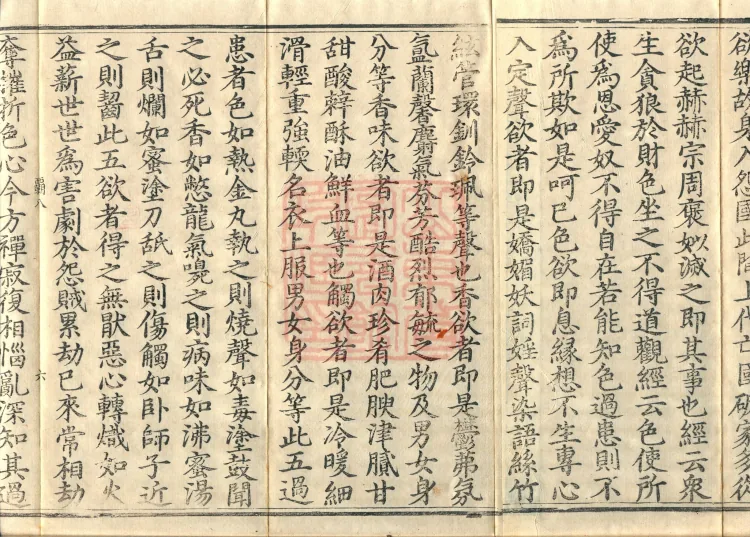 欲樂故身入怨國此陸上代亡國破家多從
欲起赫赫宗周褒姒滅之即其事也經云衆
生貪狼於財色坐之不得道觀經云色使所
使爲恩愛奴不得自在若能知色過患則不
爲所欺如是呵已色欲即息緣想不生專心
入定聲欲者即是嬌媚妖詞婬聲染語絲竹
絃管環釧鈴珮等聲也香欲者即是鬱茀氛
氳蘭馨麝氣芬芳酷烈郁毓之物及男女身
分等香味欲者即是酒肉珍肴肥腴津膩甘
甜酸辣酥油鮮血等也觸欲者即是冷暖細
滑輕重強輭名衣上服男女身分等此五過
患者色如熱金丸執之則燒聲如毒塗鼓聞
之必死香如憋龍氣嗅之則病味如沸蜜湯
舌則爛如蜜塗刀舐之則傷觸如卧師子近
之則齧此五欲者得之無猒惡心轉熾如火
益薪世世爲害劇於怨賊累劫已來常相劫
覇八
六
奪摧折色心今方禪寂復相惱亂深知其過